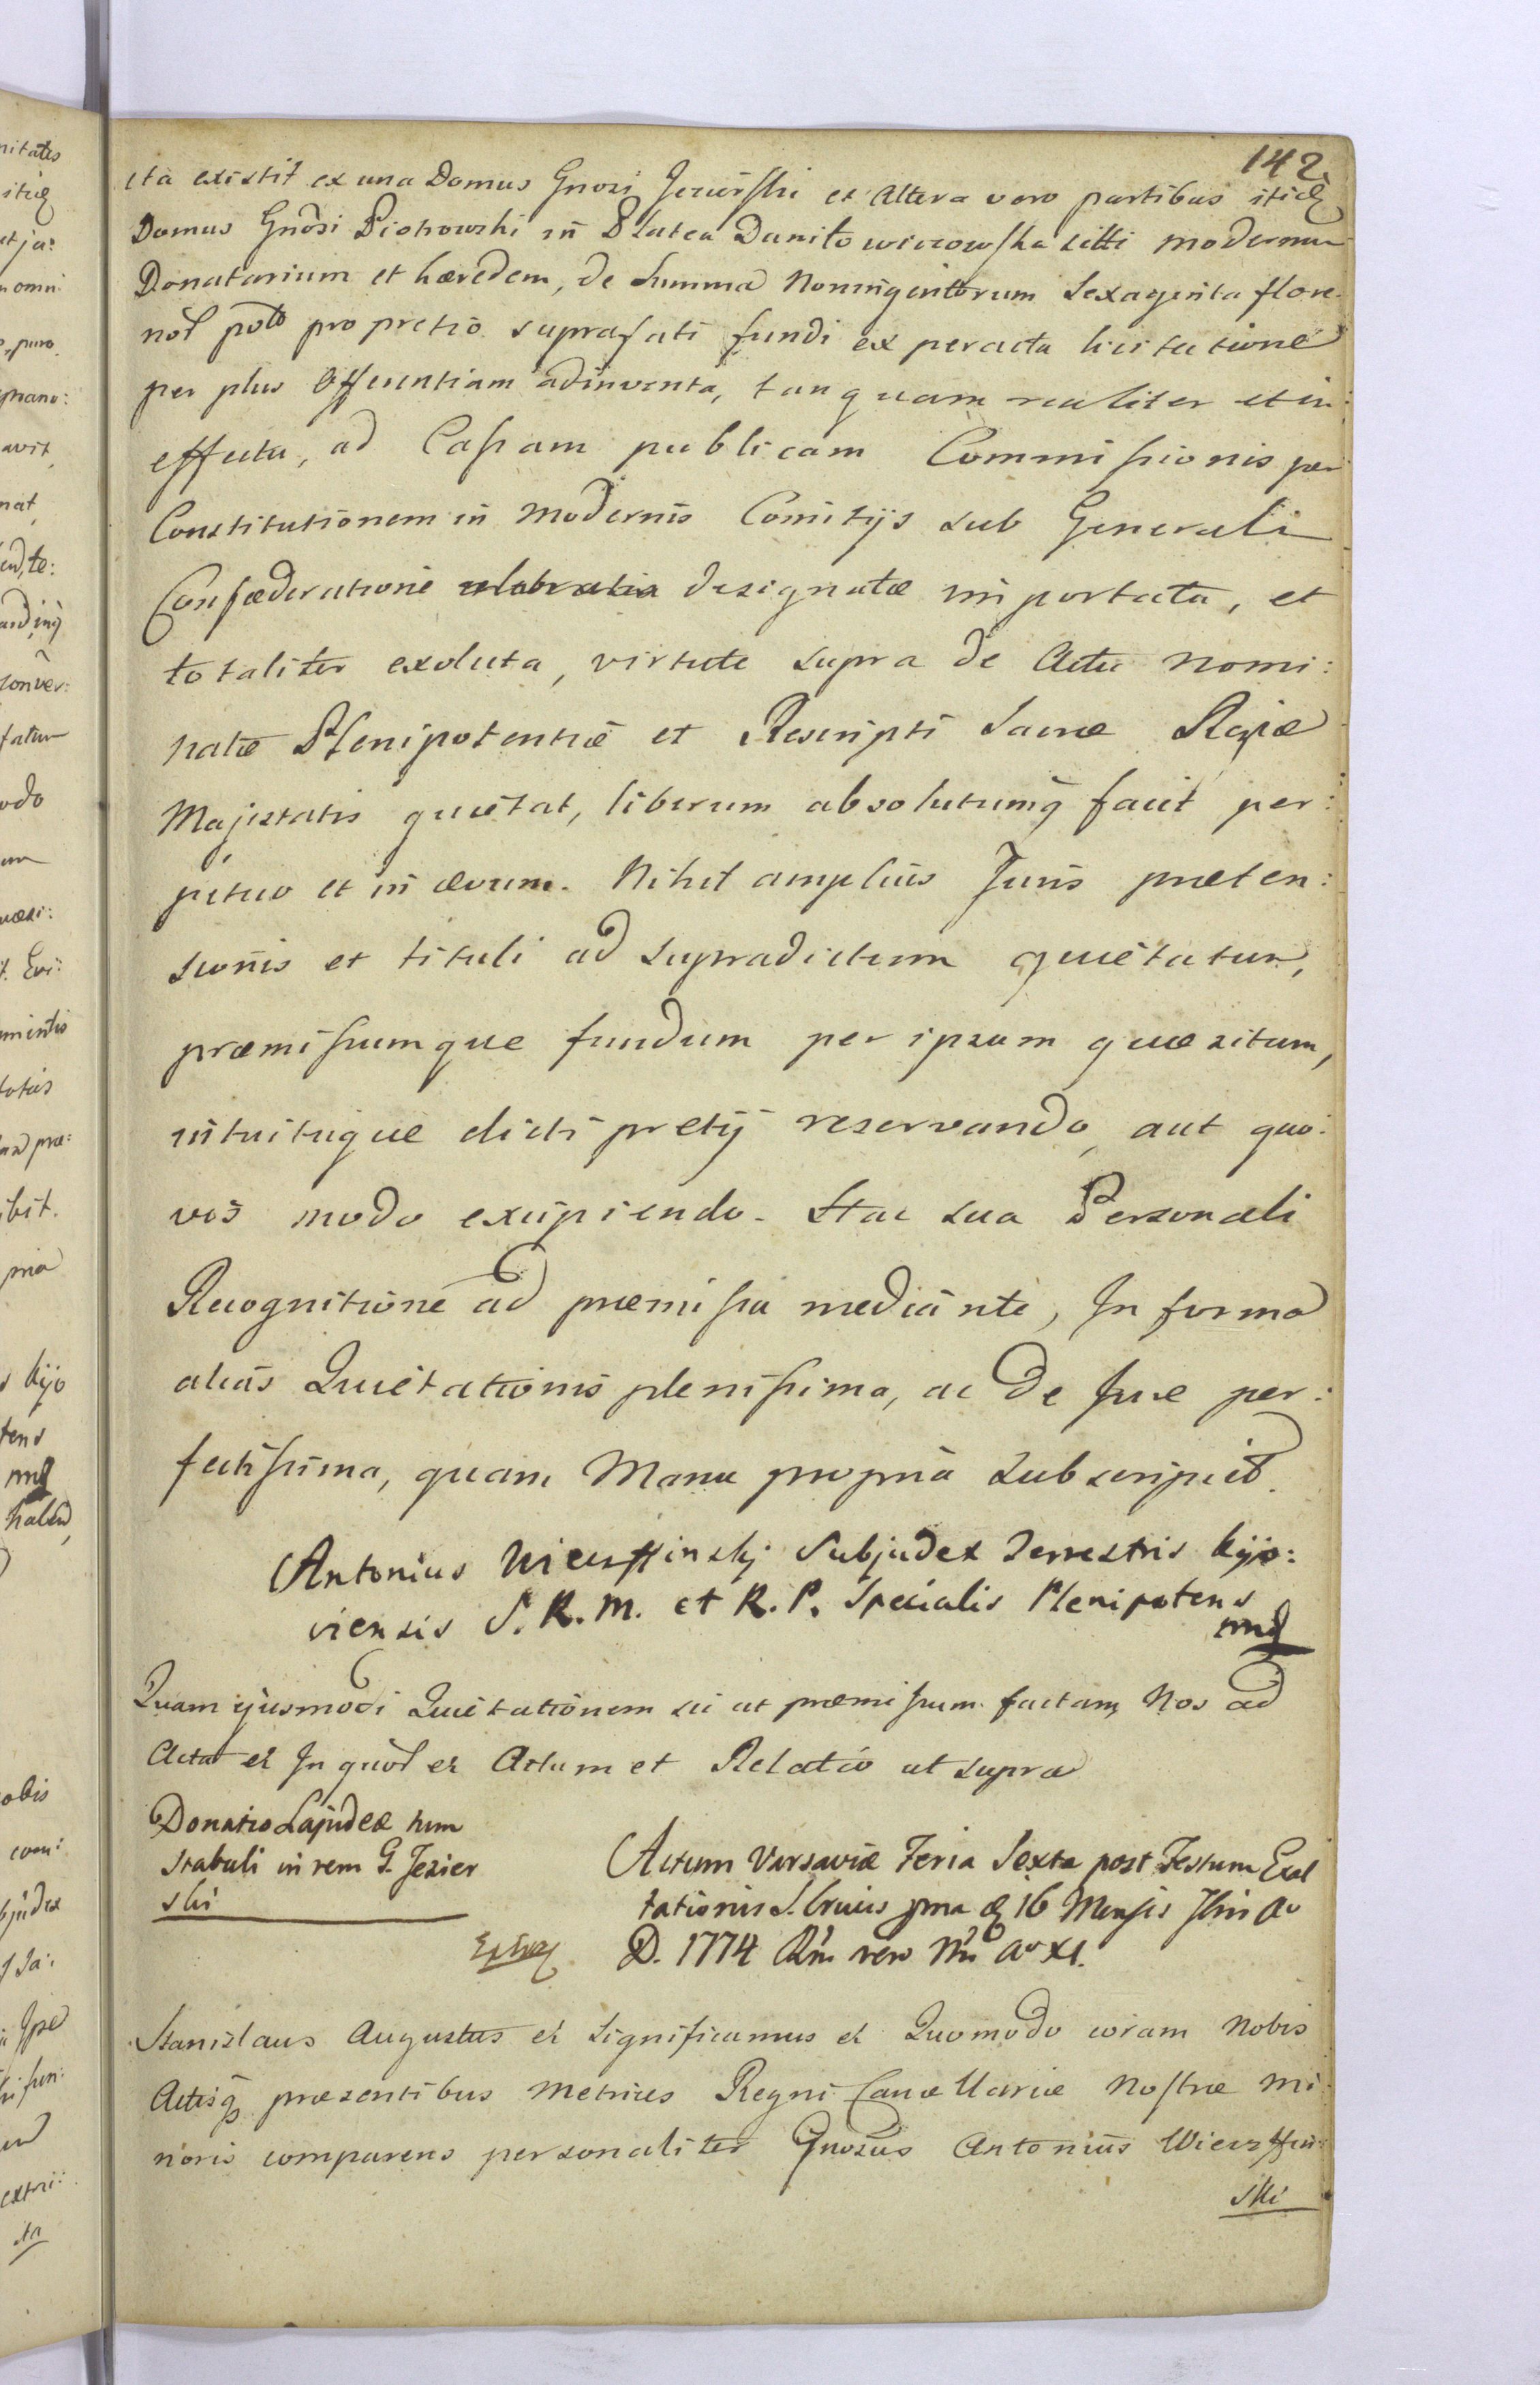 142
ita existit ex una Domus Gnosi Jezierski et Altera vero partibus itidq
Domus Gnosi Piotrowski in Platea Danilowiczowska sitti modernum
Donatarium et hæredem, de Summa Nonningentorum Sexaginta flore:
nol pol pro pretio suprafati fundi ex peracta licitatione
per plus Offerentiam adinventa, tanquam realiter et in
effectu, ad Cassam publicam Commissionis per
Constitutionem in modernis Comitijs sub Generali
Confæderatione celebratis designatæ importata, et
totaliter exoluta, virtute supra de Actu Nomi:
natæ Plenipotentiæ et Rescripti Sacræ Regiæ
Majestatis quietat, liberum absolutumq facit per:
petuo et in ævum. Nihil amplius Juris præten:
sionis et tituli ad supradictum quietatum,
præmissumque fundum per ipsum quæsitum,
intuituque dicti pretij reservando, aut quo:
vis modo excipiendo. Hac sua Personali
Recognitione ad præmissa mediante, In forma
alias Quietationis plenissima, ac De Jure per:
fectissima, quam Manu propria Subscripsit.
Antonius Wiessinskj Subjudex Terrestris Kijo:
viensis S. R. M. et R. P. Specialis Plenipotens
mp
Quam ejusmodi Quietationem sic ut præmissum factam, Nos ad
Acta et In quor et Actum et Relatio ut supra
Donatio Lapideæ tum
Stabuli in rem G. Jezier
ski
Actum Varsaviæ Feria Sexta post Festum Exal
tationis S. Crucis prna 16 Mensis 7bris Ao
D. 1774 Rni vero Nri Ao XI.
Stanislaus Augustus et Significamus et Quomodo coram Nobis
Actisq præsentibus Metrices Regni Cancellariæ Nostræ Mi:
noris comparens personaliter Gnosus Antonius Wiessin:
ski